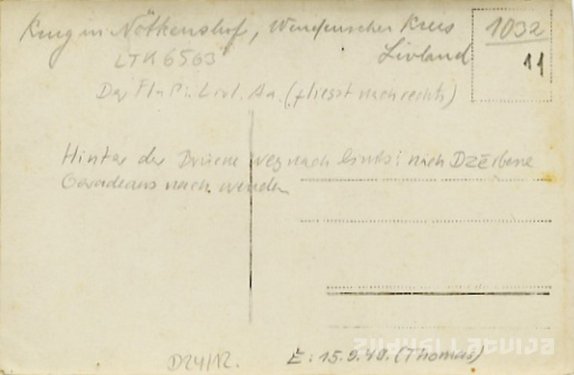 Krug in Nötkenshof, Wendenscher Kreis
Livland
1032
11
LTK 6563
Der Fluß: Livl. Aa. (fliesst nach rechts)
Hinter der Brücke Weg nach links: nach Dzērbene
Geradeaus nach Wenden
D24/12.
E: 15.9.40. (Thomas)